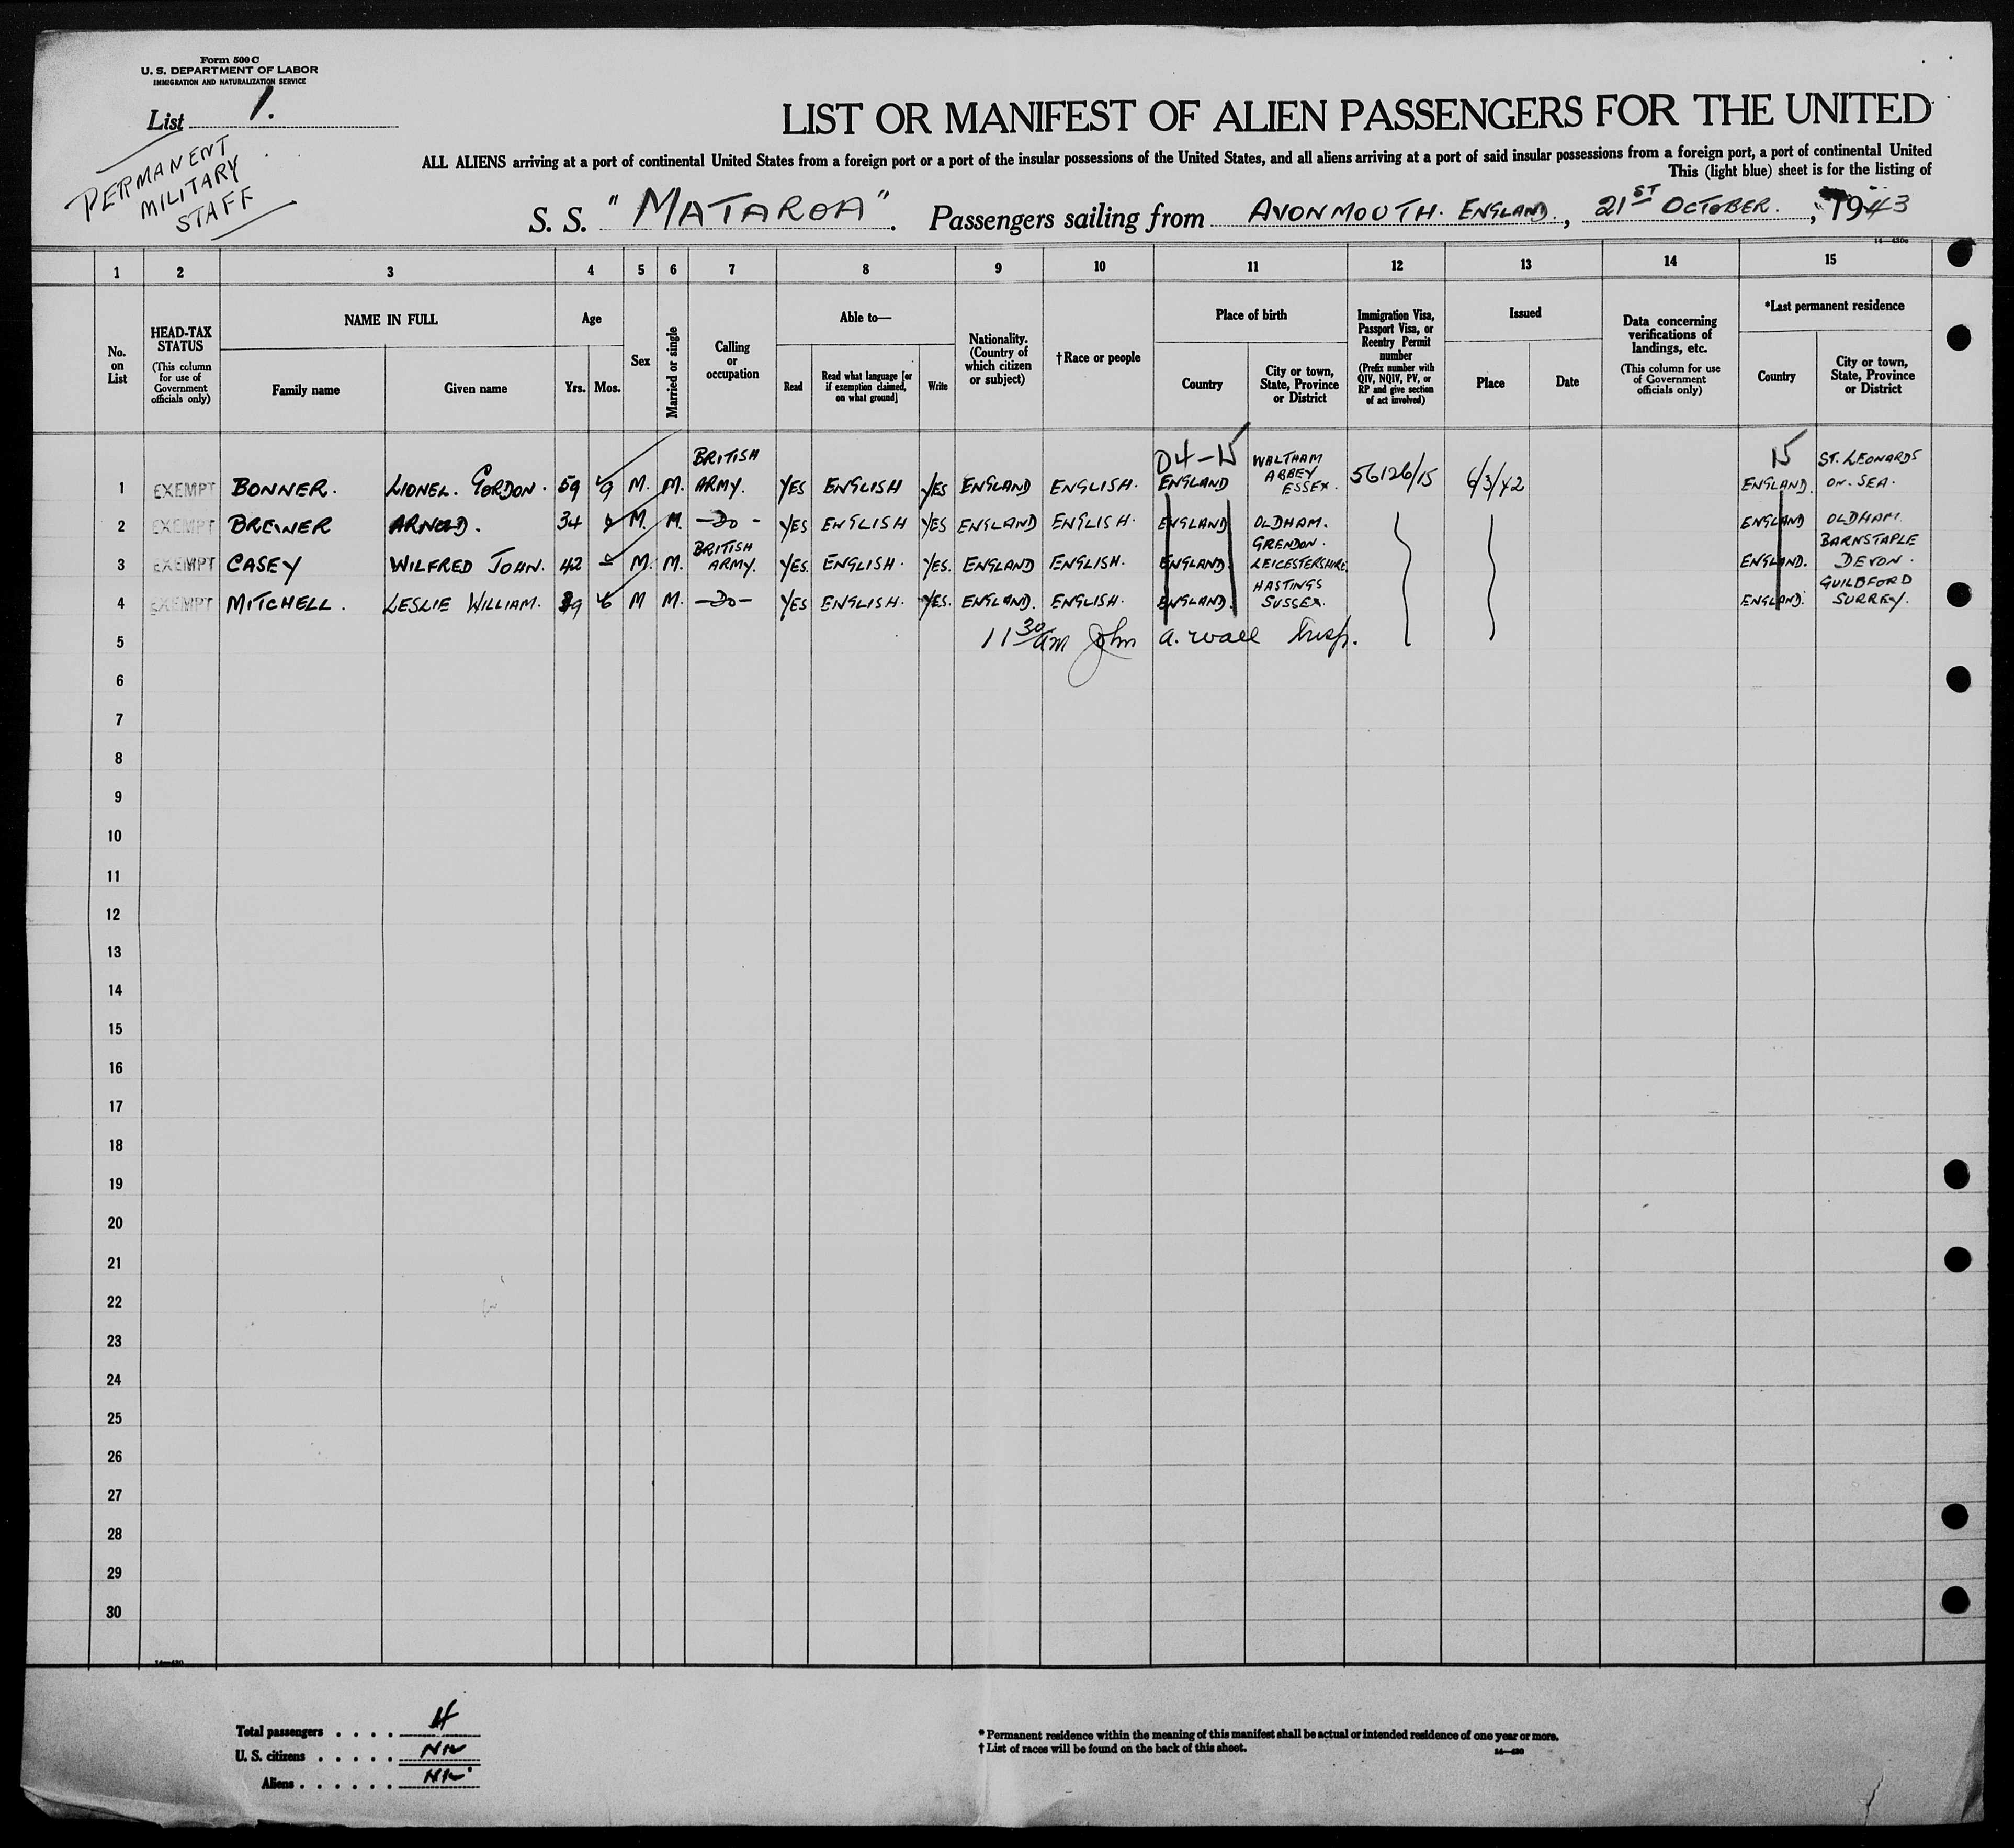 Form 500 C
U. S. DEPARTMENT OF LABOR
IMMIGRATION AND NATURALIZATION SERVICE
List 1.
PERMANENT
MILITARY
STAFF
LIST OR MANIFEST OF ALIEN PASSENGERS FOR THE UNITED
ALL ALIENS arriving at a port of continental United States from a foreign port or a port of the insular possessions of the United States, and all aliens arriving at a port of said insular possessions from a foreign port, a port of continental United
This (light blue) sheet is for the listing of
S. S. "MATAROA". Passengers sailing from AVONMOUTH. ENGLAND., 21ST OCTOBER., 1943
1 2 3 4 5 6 7 8 9 10 11 12 13 14 15
No. on List
HEAD-TAX STATUS
(This column for use of Government officials only)
NAME IN FULL
Family name
Given name
Age
Yrs. Mos.
Sex
Married or single
Calling or occupation
Able to—
Read
Read what language [or if exemption claimed, on what ground]
Write
Nationality. (Country of which citizen or subject)
†Race or people
Place of birth
Country
City or town, State, Province or District
Immigration Visa, Passport Visa, or Reentry Permit number
(Prefix number with QIV, NQIV, PV, or RP and give section of act involved)
Issued
Place
Date
Data concerning verifications of landings, etc.
(This column for use of Government officials only)
*Last permanent residence
Country
City or town, State, Province or District
04-15 15
1 EXEMPT BONNER. LIONEL. GORDON. 59 9 M. M. BRITISH ARMY. YES ENGLISH YES ENGLAND ENGLISH. ENGLAND WALTHAM ABBEY ESSEX. 56126/15 6/3/42 ENGLAND. ST. LEONARDS ON. SEA.
2 EXEMPT BREWER ARNOLD. 34 M. M. —DO— YES ENGLISH YES ENGLAND ENGLISH. ENGLAND OLDHAM. ENGLAND OLDHAM.
3 EXEMPT CASEY WILFRED JOHN. 42 - M. M. BRITISH ARMY. YES. ENGLISH. YES. ENGLAND ENGLISH. ENGLAND. GRENDON. LEICESTERSHIRE. ENGLAND. BARNSTAPLE DEVON.
4 EXEMPT MITCHELL. LESLIE WILLIAM. 39 6 M M. —DO— YES ENGLISH. YES. ENGLAND. ENGLISH. ENGLAND. HASTINGS SUSSEX. ENGLAND. GUILDFORD SURREY.
5 11 30 am John A. Wall Insp.
6
7
8
9
10
11
12
13
14
15
16
17
18
19
20
21
22
23
24
25
26
27
28
29
30
Total passengers . . . . 4
U. S. citizens . . . . . NIL
Aliens . . . . . . NIL
* Permanent residence within the meaning of this manifest shall be actual or intended residence of one year or more.
† List of races will be found on the back of this sheet.